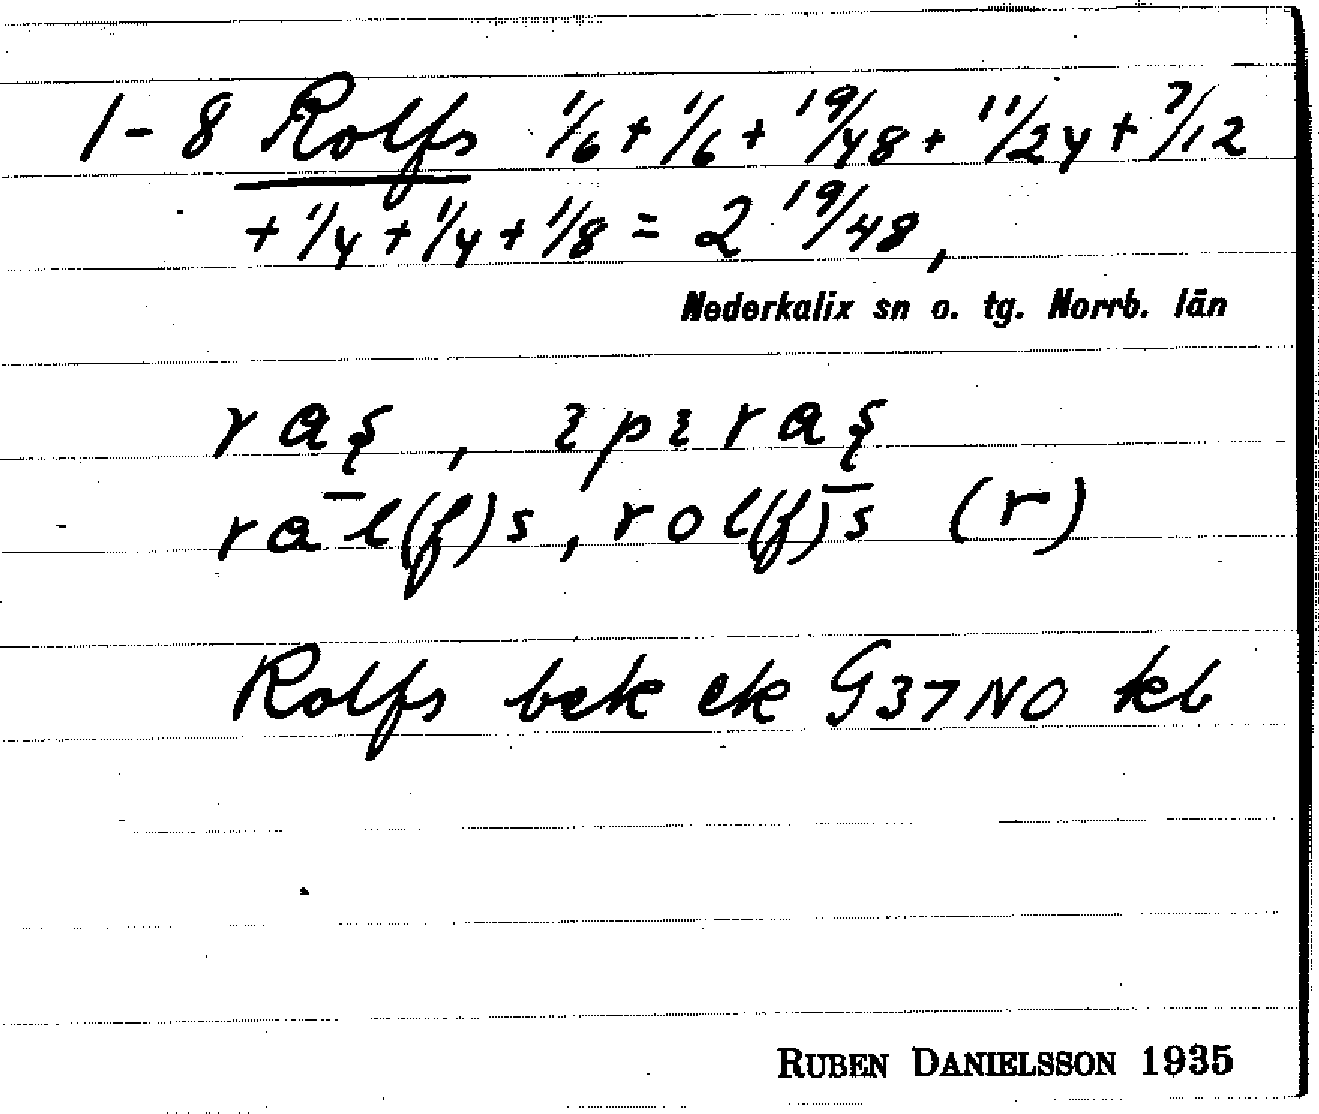 1-8 Rolfs 1/6 + 1/6 + 19/48 + 11/24 + 7/12
+ 1/4 + 1/4 + 1/8 = 2 19/48,
Nederkalix sn o. tg. Norrb. län
ral(f)s, rol(f)s (r)
Rolfs bek ek G37NO kb
RUBEN DANIELSSON 1935